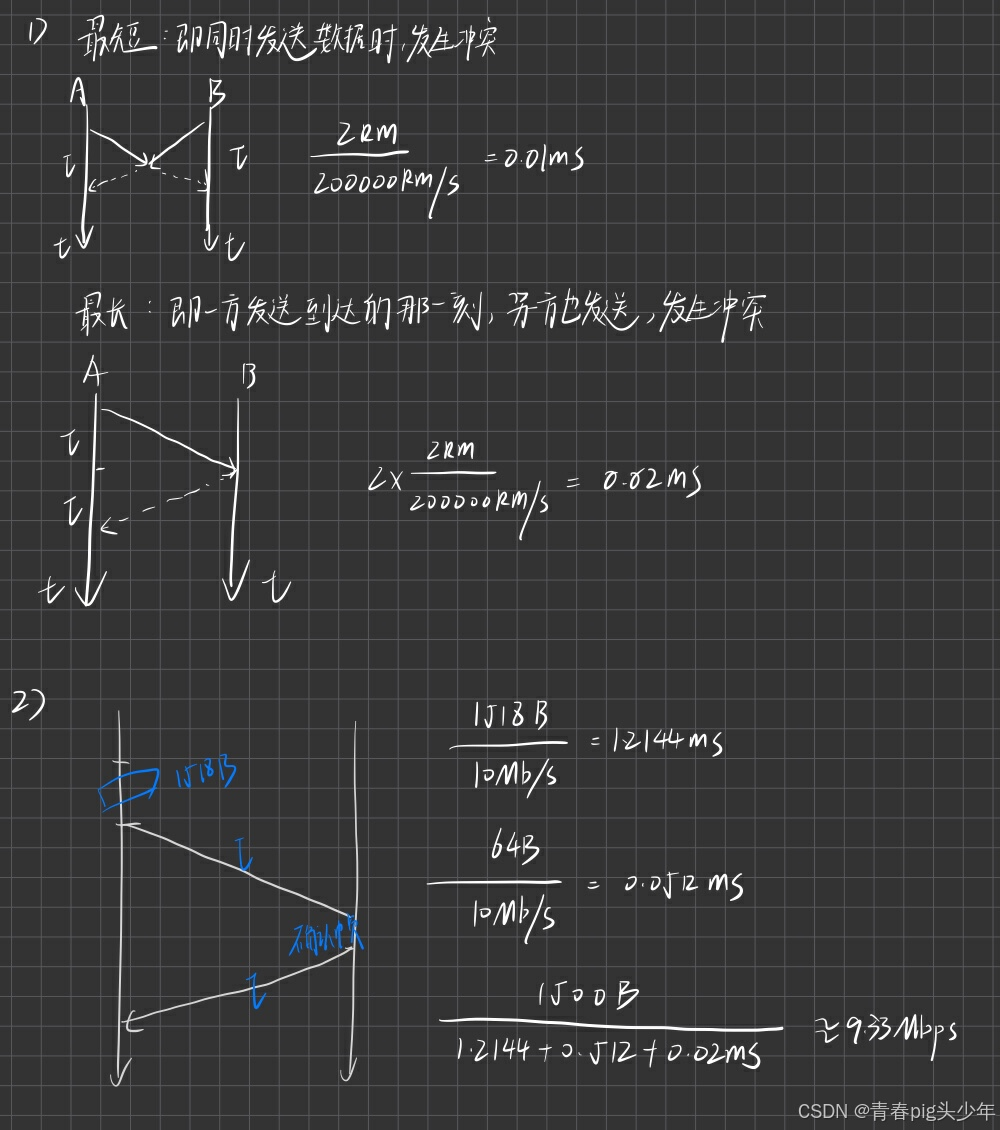 1) 最短:即同时发送数据时,发生冲突
A B
τ τ
2km
200000km/s
=0.01ms
t t
最长:即一方发送到达的那一刻,另方也发送,发生冲突
A B
τ
τ
2×
2km
200000km/s
= 0.02ms
t t
2)
1518B
10Mb/s
=1.2144ms
1518B
τ
64B
10Mb/s
= 0.0512ms
τ
1500B
1.2144+0.512+0.02ms
≈9.33Mbps
CSDN @青春pig头少年